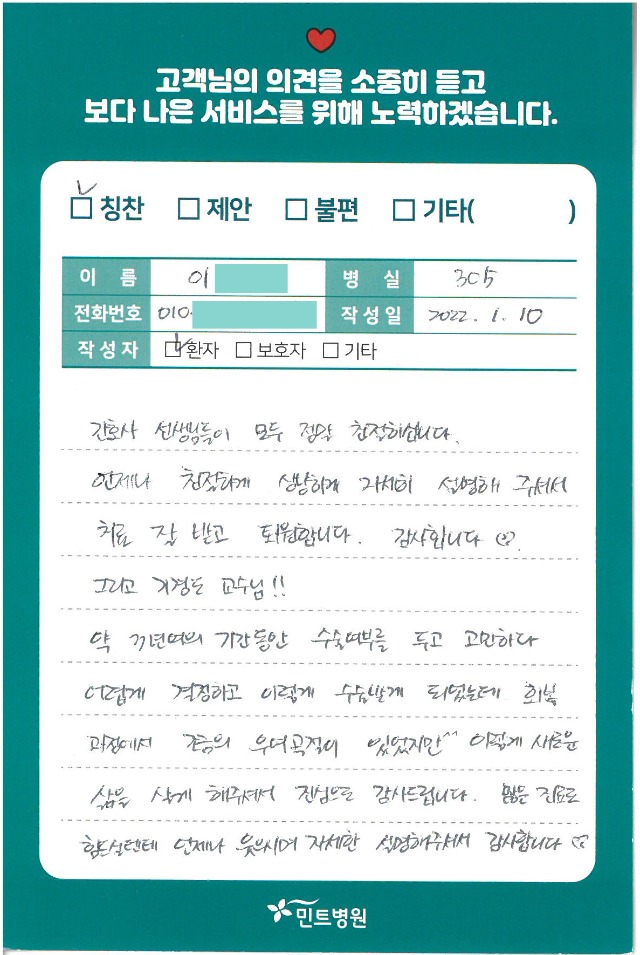 고객님의 의견을 소중히 듣고
보다 나은 서비스를 위해 노력하겠습니다.
☐ 칭찬 ☐ 제안 ☐ 불편 ☐ 기타( )
이 름 이 병 실 305
전화번호 010- 작성일 2022. 1. 10
작성자 ☐환자 ☐보호자 ☐기타
간호사 선생님들이 모두 정말 친절하십니다.
언제나 친절하게 상냥하게 자세히 설명해 주셔서
치료 잘 받고 퇴원합니다. 감사합니다
그리고 교수님!!
약 여의 기간동안 수술여부를 두고 고민하다
어렵게 결정하고 이렇게 수술받게 되었는데 회복
과정에서 조금의 우여곡절이 있었지만^^ 이렇게 새로운
삶을 살게 해주셔서 진심으로 감사드립니다. 많은 진료로
힘드실텐데 언제나 웃으시며 자세한 설명해주셔서 감사합니다
민트병원